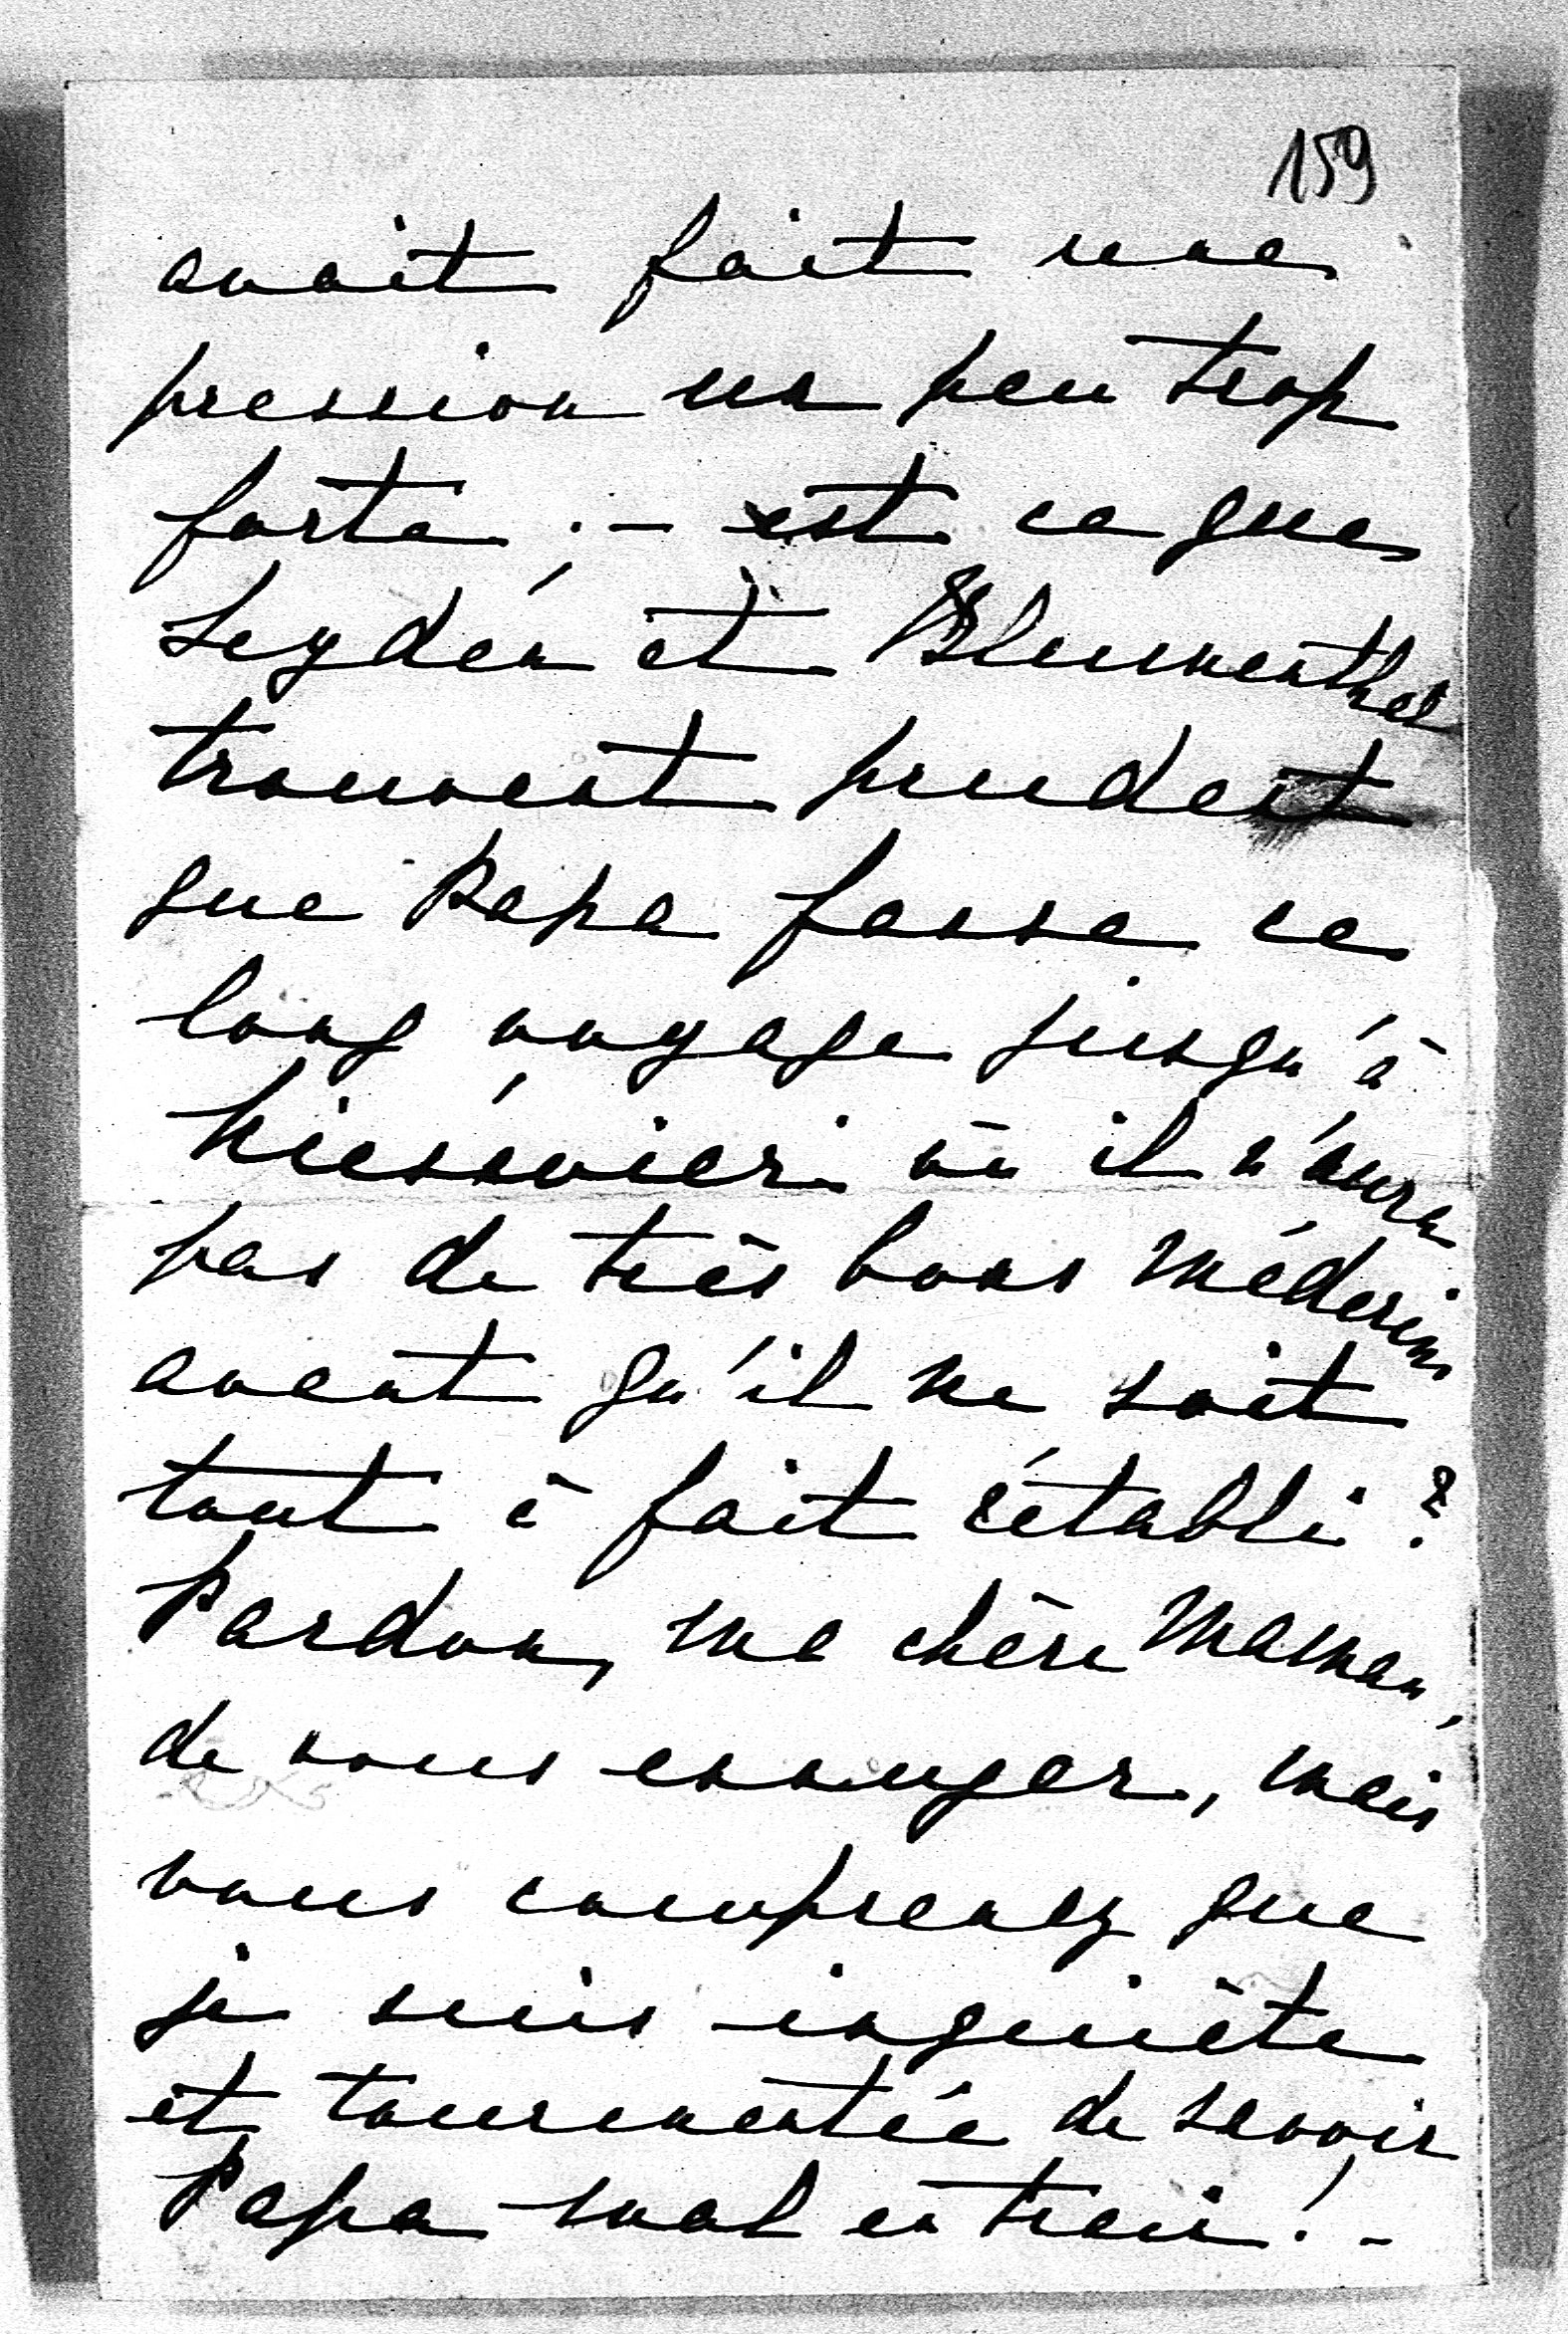 159
avait fait une
pression un peu trop
forte ; - est ce que
Leyden et Blumenthal
trouvent prudent
que Papa fasse ce
long voyage jusqu'à
où il n'aura
pas de très bons médecins
avant qu'il ne soit
tout à fait rétabli ?
Pardon, ma chère Maman,
de vous ennuyer, mais
vous comprenez que
je suis inquiète
et tourmentée de savoir
Papa mal en train ! -